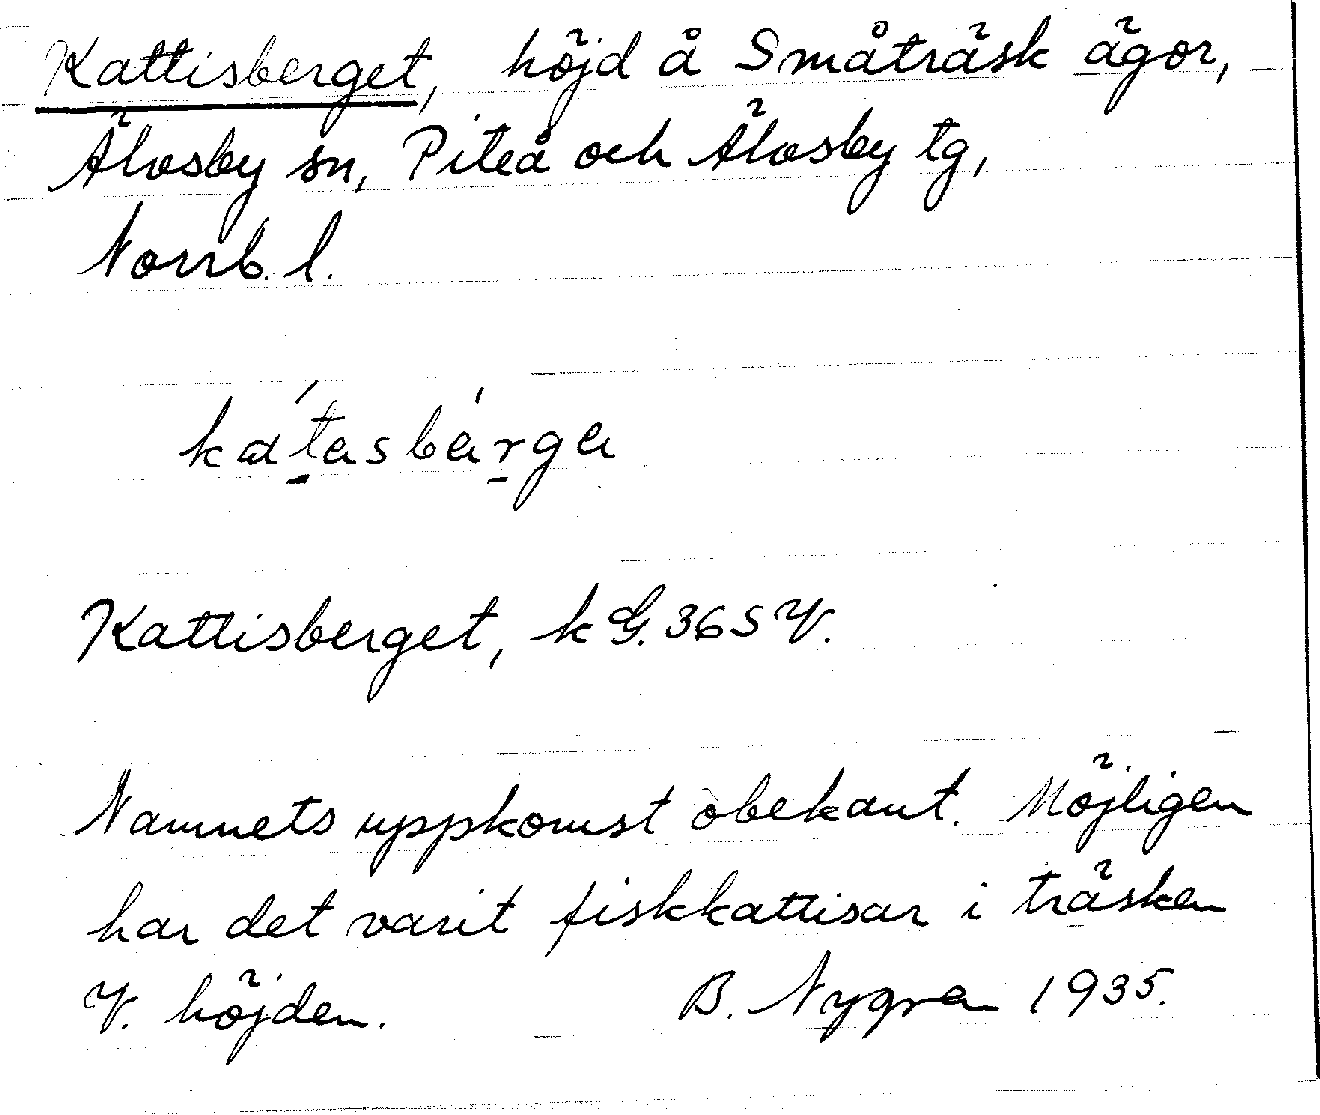 Kattisberget, höjd å Småträsk ägor,
Älvsby sn, Piteå och Älvsby tg,
Norrb. l.
kátasbárga
Kattisberget, k G. 36 S V.
Namnets uppkomst obekant. Möjligen
har det varit fiskkattisar i träsken
V. höjden. B. Nygren 1935.